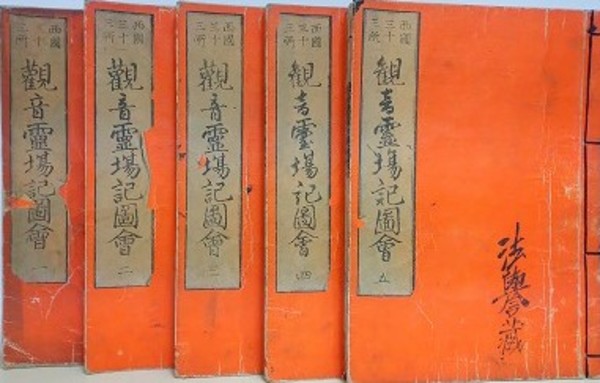 西國
三十
三所
觀音靈場記圖會 一
西國
三十
三所
觀音靈場記圖會 二
西國
三十
三所
觀音靈場記圖會 三
西國
三十
三所
觀音靈場記圖會 四
西國
三十
三所
觀音靈場記圖會 五
法譽藏